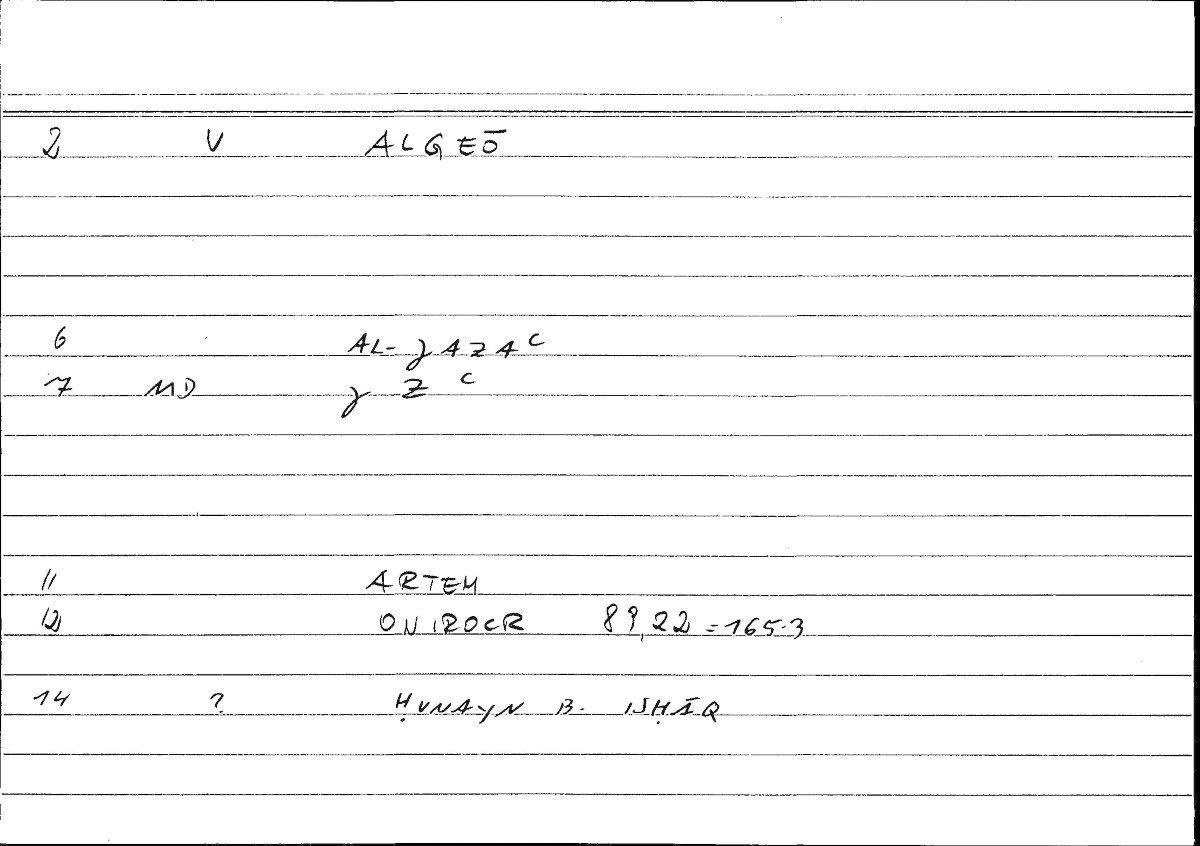 2 V ALGEŌ
6 AL-ǧAZAʿ
7 MD ǧ Z ʿ
11 ARTEM
12 ONIROCR 89,22 = 165.3
14 ? ḤUNAYN B. ISḤĀQ